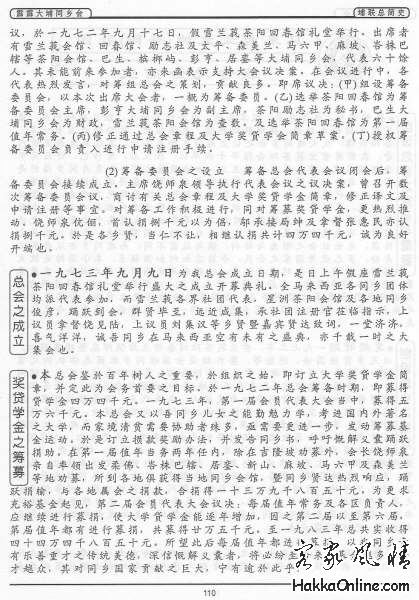 霹雳大埔同乡会
埔联总简史
议，於一九七二年九月十七日，假雪兰莪茶阳回春馆礼堂举行。出席者
有雪兰莪会馆、回春馆、励志社及太平、森美兰、马六甲、麻坡、峇株巴
辖等茶阳会馆、巴生、槟榔屿、彭亨、居銮等大埔同乡会，代表六十馀
人。其未能前来参加者，亦来函表示支持大会议决案。在会议进行中，各
代表热烈发言，对筹组总会之策划，贡献良多。即席议决：(甲)组设筹备
委员会，以本次出席大会者，一概为筹备委员。(乙)选举茶阳回春馆为筹
备委员会主席，彭亨大埔同乡会为副主席，茶阳励志社为秘书，巴生大
埔同乡会为财政，雪兰莪茶阳会馆为查数。及选举茶阳回春馆为第一届
值年常务。(丙)修正通过总会章程及大学奖贷学金简章草案，(丁)授权筹
备委员会负责人进行申请注册手续。
(2)筹备委员会之设立　筹备总会代表会议闭会后，筹
备委员会接续成立。主席饶师泉领导执行代表会议之议决案，曾召开数
次筹备委员会议，商讨有关总会章程及大学奖贷学金简章，修正译文及
申请注册等事宜。对筹备工作积极进行，同时筹募奖贷学金，更热烈推
动。饶师泉优俪，首认捐弍千元以为倡，邬承接局绅及章督张惠民亦认
捐弍千元。於是各乡贤，当仁不让，相继认捐共计四万四千元，诚为良好
开端也。
总会之成立
●一九七三年九月九日为我总会成立日期，是日上午假座雪兰莪
茶阳回春馆礼堂举行盛大之成立开幕典礼。全马来西亚各同乡团体
均派代表参加，而雪兰莪各界社团代表、星洲茶阳会馆及各地同乡
俊彦，踊跃到会，群贤毕至，远近咸集，承社团注册官莅临指示，上
议员拿督饶见陆，上议员刘集汉等乡贤暨嘉宾贤达致词，一堂济济，
喜气洋洋，诚吾同乡在马来西亚空有未有之盛典，亦千载一时之大
集会也。
奖贷学金之筹募
●本总会鉴於百年树人之重要，於组织之始，即订立大学奖贷学金简
章，并定此为会务首要之目标。於一九七二年总会筹备时期，即募得
奖贷学金四万四千元。一九七三年，第一届会员代表大会当中，募得五
万六千元。本总会又以吾同乡儿女之能勤勉力学，考进国内外著名
之大学，而家境清贫需要协助者殊多，亟需要更进一步，发动筹募基
金运动。於是订立捐款奖励办法，并发告同乡书，呼吁慨解义囊踊跃
捐助。在第一届值年当务两年任内，除在吉隆坡劝募外，会长饶师泉
亲自率领出发柔佛、峇株巴辖、居銮、新山、麻坡、马六甲及森美兰
等地劝募，所到各地俱获得当地同乡会馆，暨同乡贤达热烈响应，踊
跃捐输，与各地属会之捐款，合捐得一十三万九千八百五十元，为更求
充裕基金起见，第二届会员代表大会议决：每届值年常务及各区负责人，
应继续进行募捐，使大学奖贷学金能逐年增加，固之第二届以至第六届，
第届值年都有进行募捐，共募得廿万五千元，至一九八三年总共实收得
四十四万四千八百五十元，所望此后每届值年都进行
有乐善重才之传统美德，深信慨解义囊者，将必纷至
才越众，其对同乡国家贡献之巨大，宁有逾於此乎
110
客家风情
HakkaOnline.com